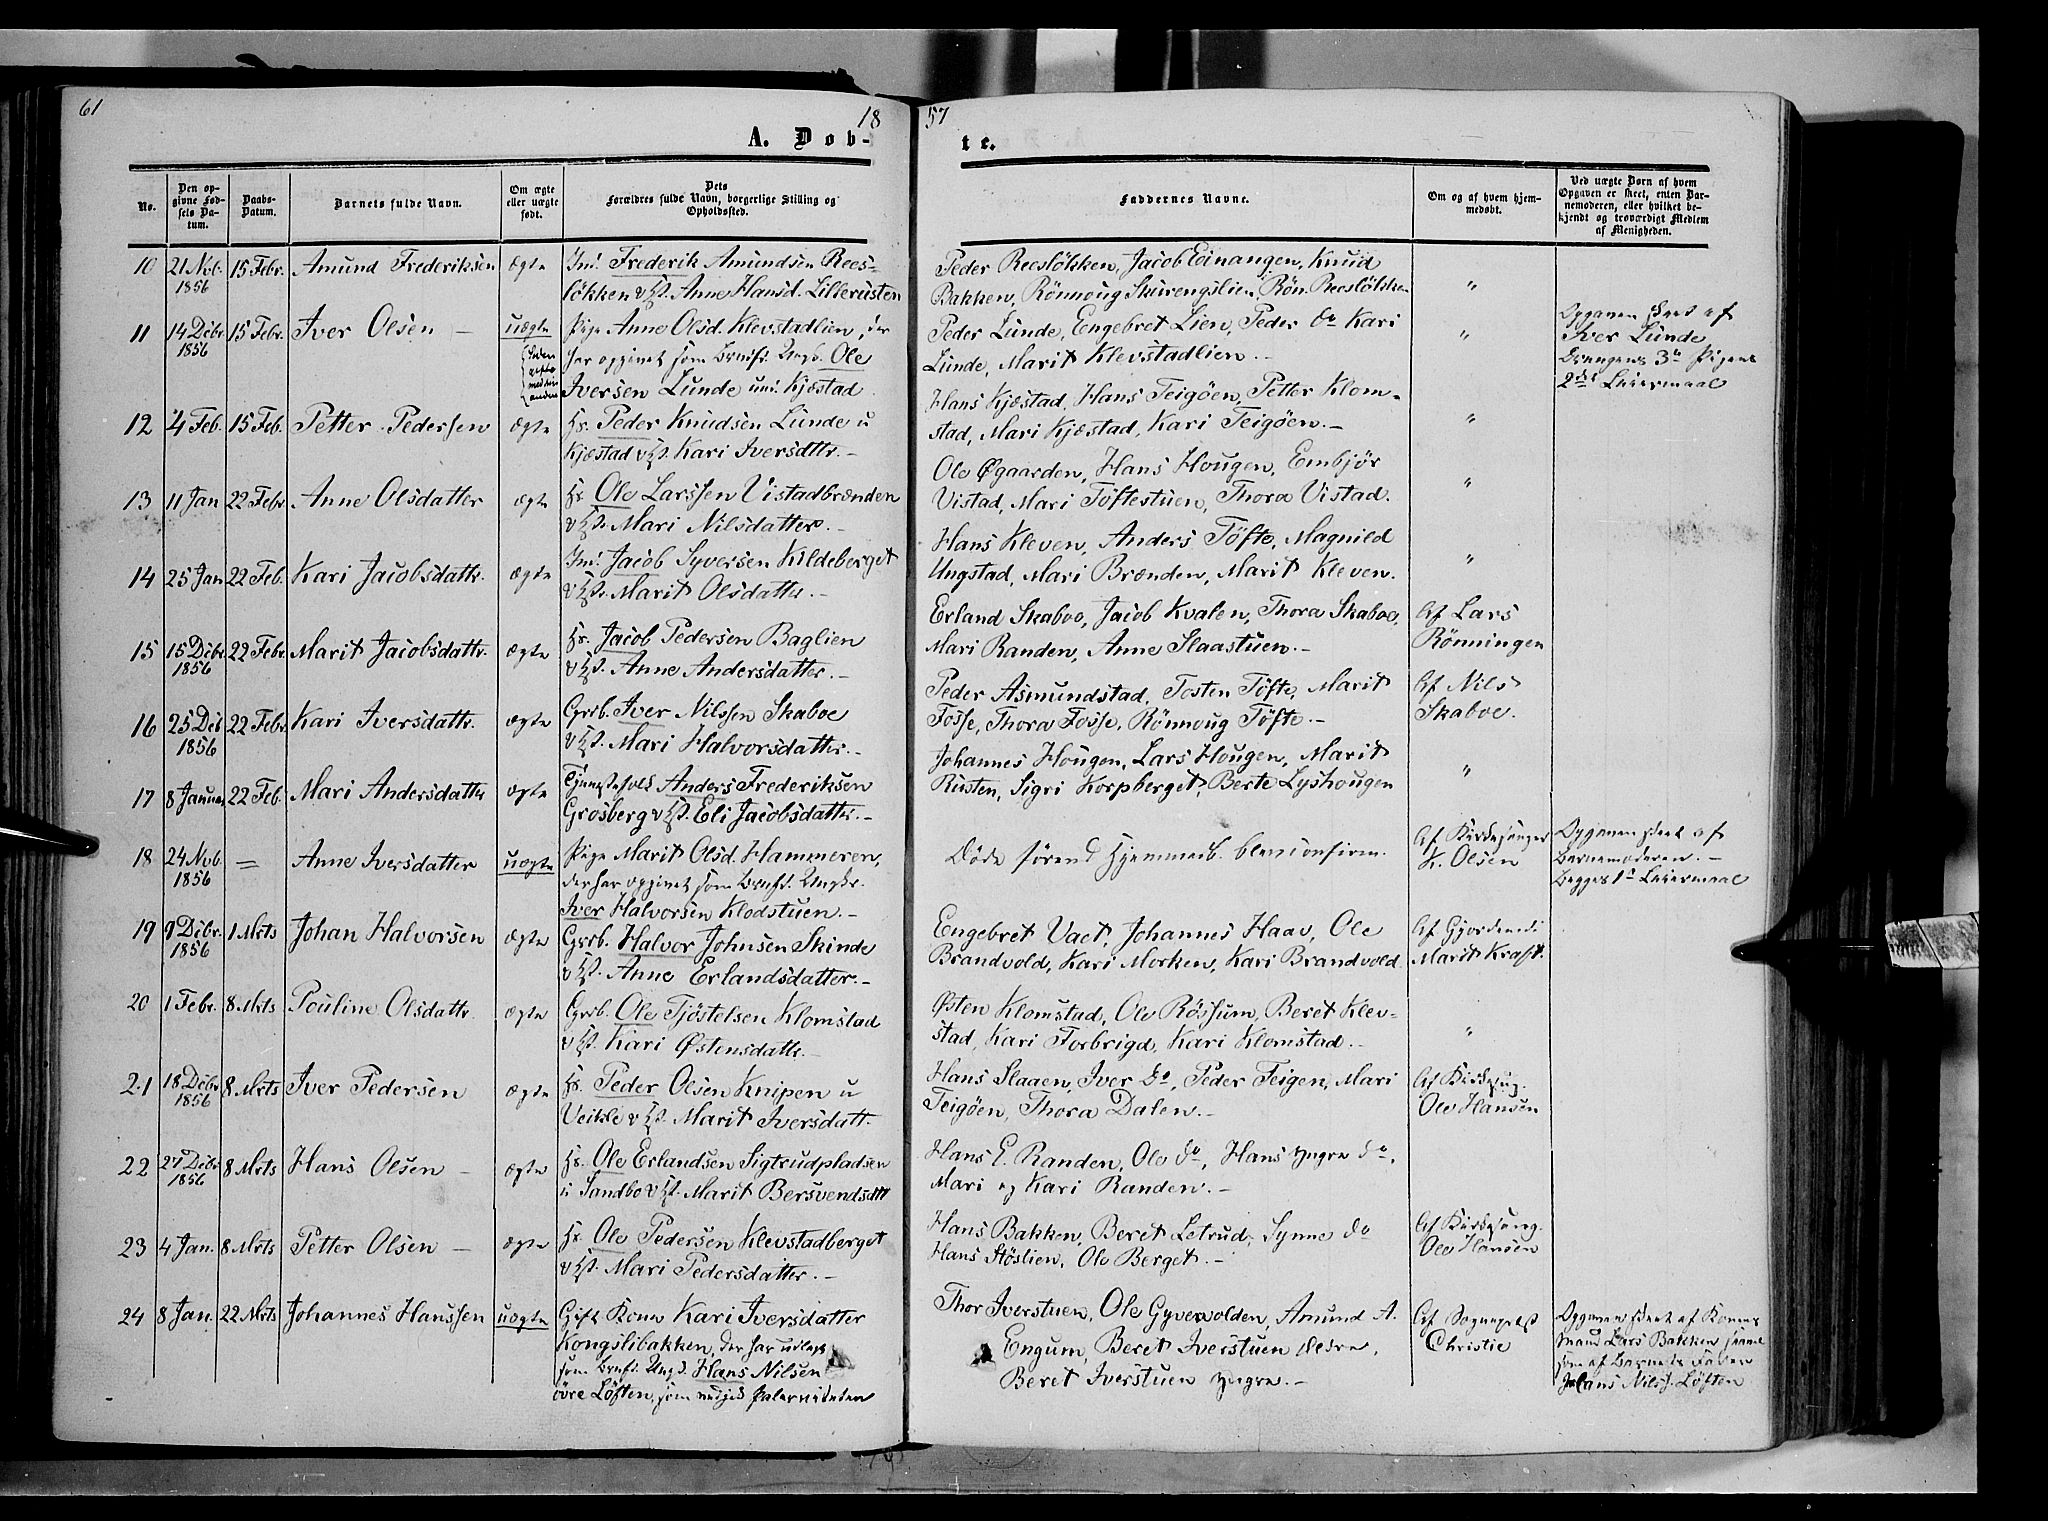 61
18
57
A. Døb-
te.
No.
Den op-
givne Fød-
sels Da-
tum.
Daabs-
Datum.
Barnets fulde Navn.
Om ægte
eller uægte
født.
Dets
Forældres fulde Navn, borgerlige Stilling og
Opholdssted.
Faddernes Navne.
Om og af hvem hjem-
medøbt.
Ved uægte Børn af hvem
Opgaven er skeet, enten Bar-
nemoderen, eller hvilket be-
kjendt og troværdigt Medlem
af Menigheden.
10 21 Nov. 1856 15 Febr. Amund Frederiksen ægte Inl Frederik Amundsen Rees-
løkken v Hst. Anne Hansd. Lillerusten
Peder Reesløkken, Jacob Einangen, Knud
Bakken, Rönnoug Skurengslien, Rön. Reesløkken
"
11 14 Decbr 1856 15 Febr. Iver Olsen – uægte
Pige Anne Olsd. Klevstadlien, der
har opgivet som Barnef. Ungk. Ole
Iversen Lunde und. Kjæstad
Peder Lunde, Engebret Lien, Peder do Kari
Lunde, Marit Klevstadlien. –
"
Opgaven skeet af
Iver Lunde
Drengens 3die Pigens
2det Leiermaal
12 4 Feb. 15 Feb. Petter Pedersen ægte Hs. Peder Knudsen Lunde u
Kjæstad v Hst. Kari Iversdttr. –
Hans Kjæstad, Hans Teigöen, Petter Klom-
stad, Mari Kjæstad, Kari Teigöen. –
"
13 11 Jan 22 Febr. Anne Olsdatter ægte Hs Ole Larssen Vistadbrænden
v Hst. Mari Nilsdatter. –
Ole Øgaarden, Hans Hougen, Embjör
Vistad, Mari Töftestuen, Thora Vistad.
"
14 25 Jan 22 Feb. Kari Jacobsdattr. ægte Inl Jacob Syversen Kildeberget
v Hst. Marit Olsdatter. –
Hans Kleven, Anders Töfte, Magnild
Ungstad, Mari Brænden, Marit Kleven.
"
15 15 Decbr 1856 22 Febr Marit Jacobsdattr. ægte Hs. Jacob Pedersen Baglien
v Hst. Anne Andersdatter. –
Erland Skaboe, Jacob Kvalen, Thora Skaboe,
Mari Randen, Anne Slaastuen. –
Af Lars
Rönningen
16 25 Dec 1856 22 Febr Kari Iversdattr. ægte Grb. Iver Nilssen Skaboe
v Hst. Mari Halvorsdatter. –
Peder Asmundstad, Tosten Töfte, Marit
Fosse, Thora Fosse, Rönnoug Töfte. –
Af Nils
Skaboe.
17 8 Januar 22 Feb. Mari Andersdatter ægte Tjenestefolk Anders Frederiksen
Grosberg v Hst. Eli Jacobsdatter. –
Johannes Hougen, Lars Hougen, Marit
Rusten, Sigri Korpberget, Berte Lyshougen
"
18 24 Nov. 1856 = Anne Iversdatter uægte Pige Marit Olsd. Hammeren,
der har opgivet som Barnef. Ungkr.
Iver Halvorsen Klodstuen. –
Döde förend Hjemmed. blev confirm.
Af Kirkesanger
K. Olsen
Opgaven skeet af
Barnemoderen. –
Begges 1ste Leiermaal
19 9 Decbr. 1856 1 Mrts Johan Halvorsen ægte Grb. Halvor Johnsen Skinde
v Hst. Anne Erlandsdatter. –
Engebret Vaet, Johannes Haav, Ole
Brandvold, Kari Morken, Kari Brandvold
Af Gjordemod
Marit Kraft.
20 1 Febr. 8 Mrts Pouline Olsdattr. ægte Grb. Ole Tjöstelsen Klomstad
v Hst. Kari Østensdattr. –
Østen Klomstad, Ole Rössum, Beret Klev-
stad, Kari Forbrigd, Kari Klomstad. –
"
21 18 Decbr 1856 8 Mrts Iver Pedersen ægte Hs. Peder Olsen Knipen u
Veikle v Hst. Marit Iversdatt.
Hans Slaaen, Iver do, Peder Teigen, Mari
Teigöen, Thora Dalen. –
Af Kirkesang.
Ole Hansen
22 27 Decbr 1856 8 Mrts Hans Olsen – ægte Hs. Ole Erlandsen Sigtrudpladsen
u Sandbo v Hst. Marit Bersvendsdttr
Hans E. Randen, Ole do, Hans yngre do,
Mari og Kari Randen. –
23 4 Jan. 8 Mrts Petter Olsen – ægte Hs. Ole Pedersen Klevstadberget
v Hst. Mari Pedersdatter. –
Hans Bakken, Beret Letrud, Synne do
Hans Stöslien, Ole Berget. –
Af Kirkesang.
Ole Hansen
24 8 Jan. 22 Mrts Johannes Hanssen uægte Gift Kone Kari Iversdatter
Kongslibakken, der har udlagt
som Barnef. Ungk. Hans Nilsen
övre Löften, som
Thor Iverstuen, Ole Gyvevolden, Amund A.
Engum, Beret Iverstuen ældre,
Beret Iverstuen yngre. –
Af Sognepræst
Christie
Opgaven skeet af Konens
Mand Lars Bakken samt
som af Barnets Fader
Hans Nilss. Löften